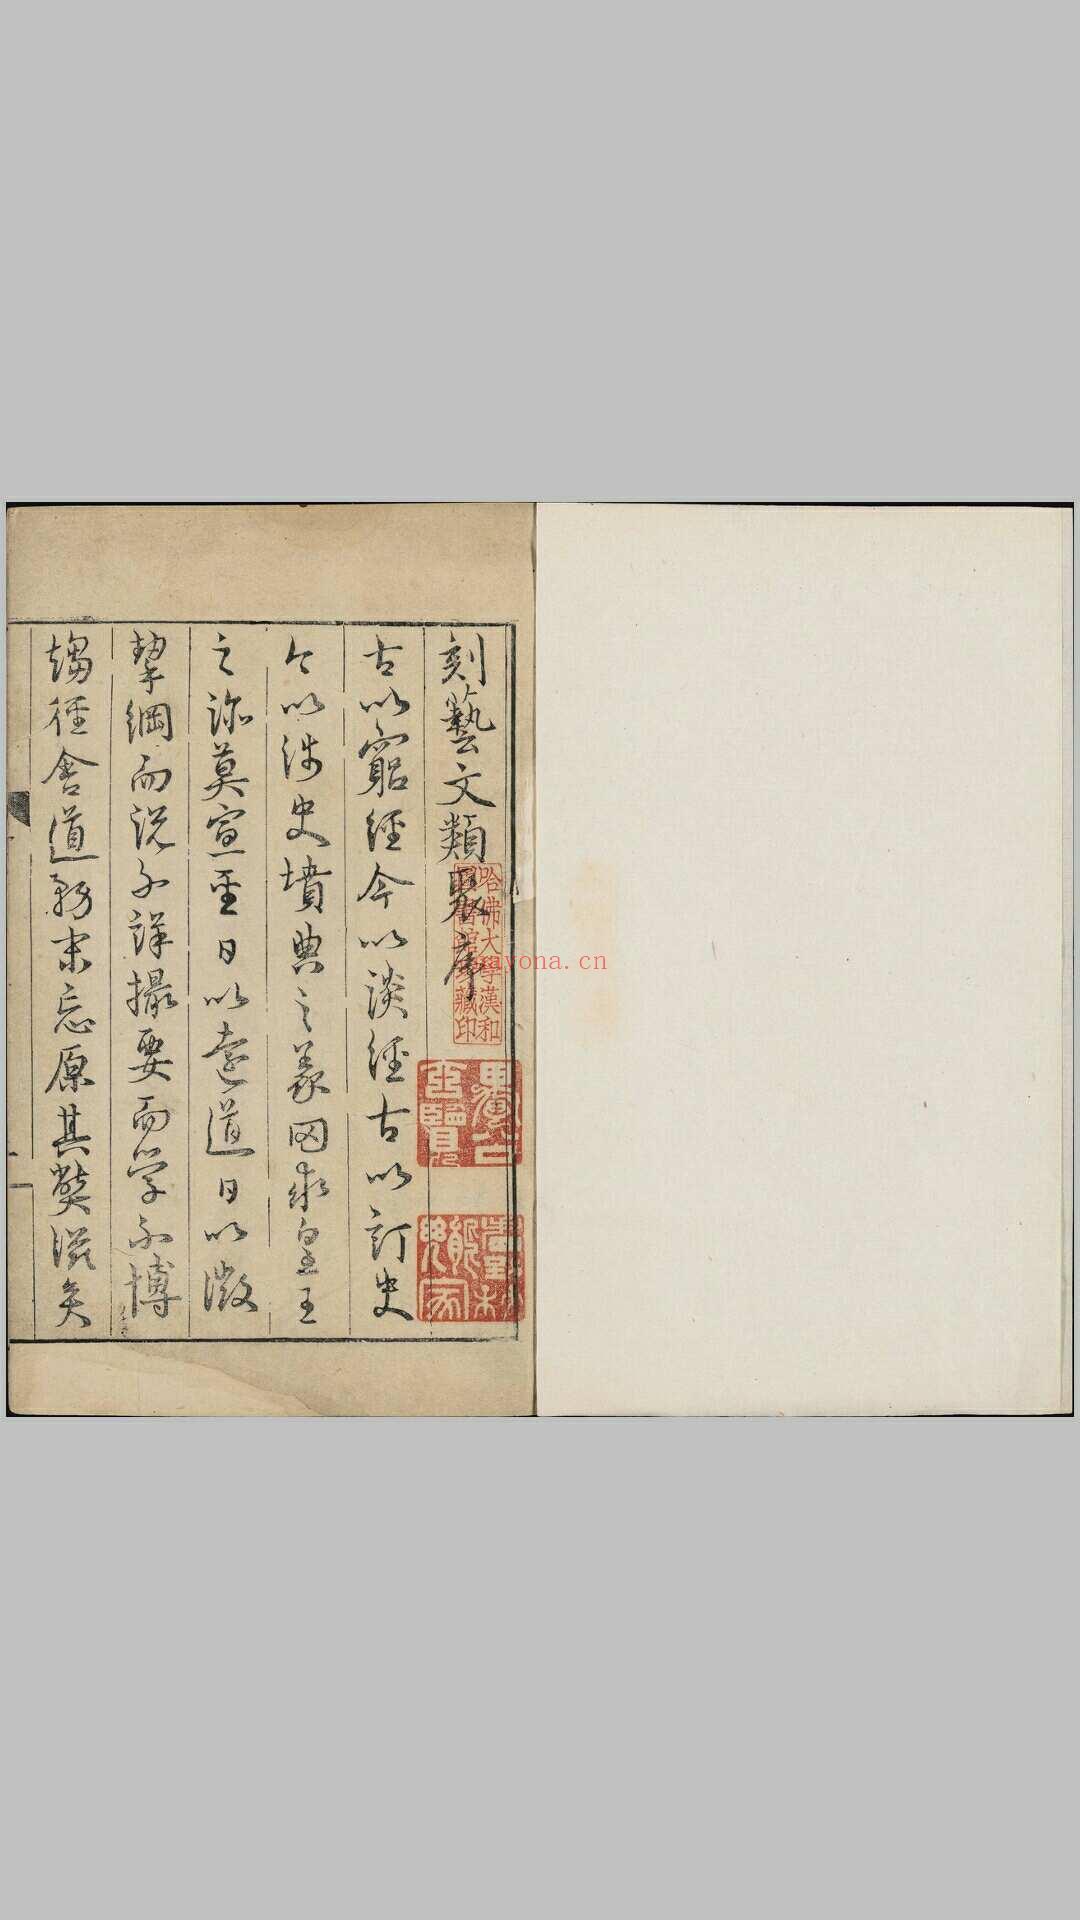 刻藝文類聚序
古以窮經今以談經古以訂史
今以涉史墳典之義罔求皇王
之迹莫宣聖日以遠道日以微
挈綱而說不詳撮要而學不博
趨徑舍道務末忘原其獘滋矣
哈佛大學漢和
圖書館珍藏印
ayona.cn